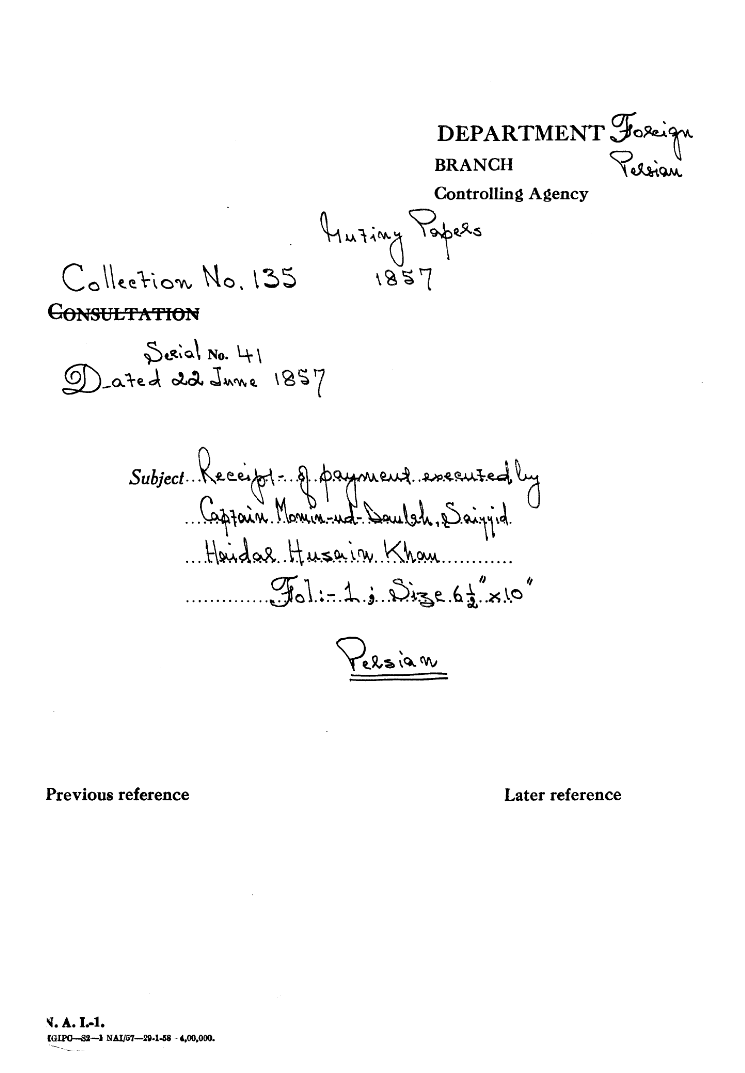 DEPARTMENT Foreign
BRANCH Persian
Controlling Agency
Mutiny Papers
Collection No. 135 1857
CONSULTATION
Serial No. 41
Dated 22 June 1857
Subject Receipt of payment executed by
Captain Momin-ud-Dauleh, Saiyyid
Haidar Husain Khan
Fol:- 1; Size 6½" x 10"
Persian
Previous reference Later reference
N. A. I.-1.
GIPC—S2—1 NAI/57—29-1-58 - 4,00,000.